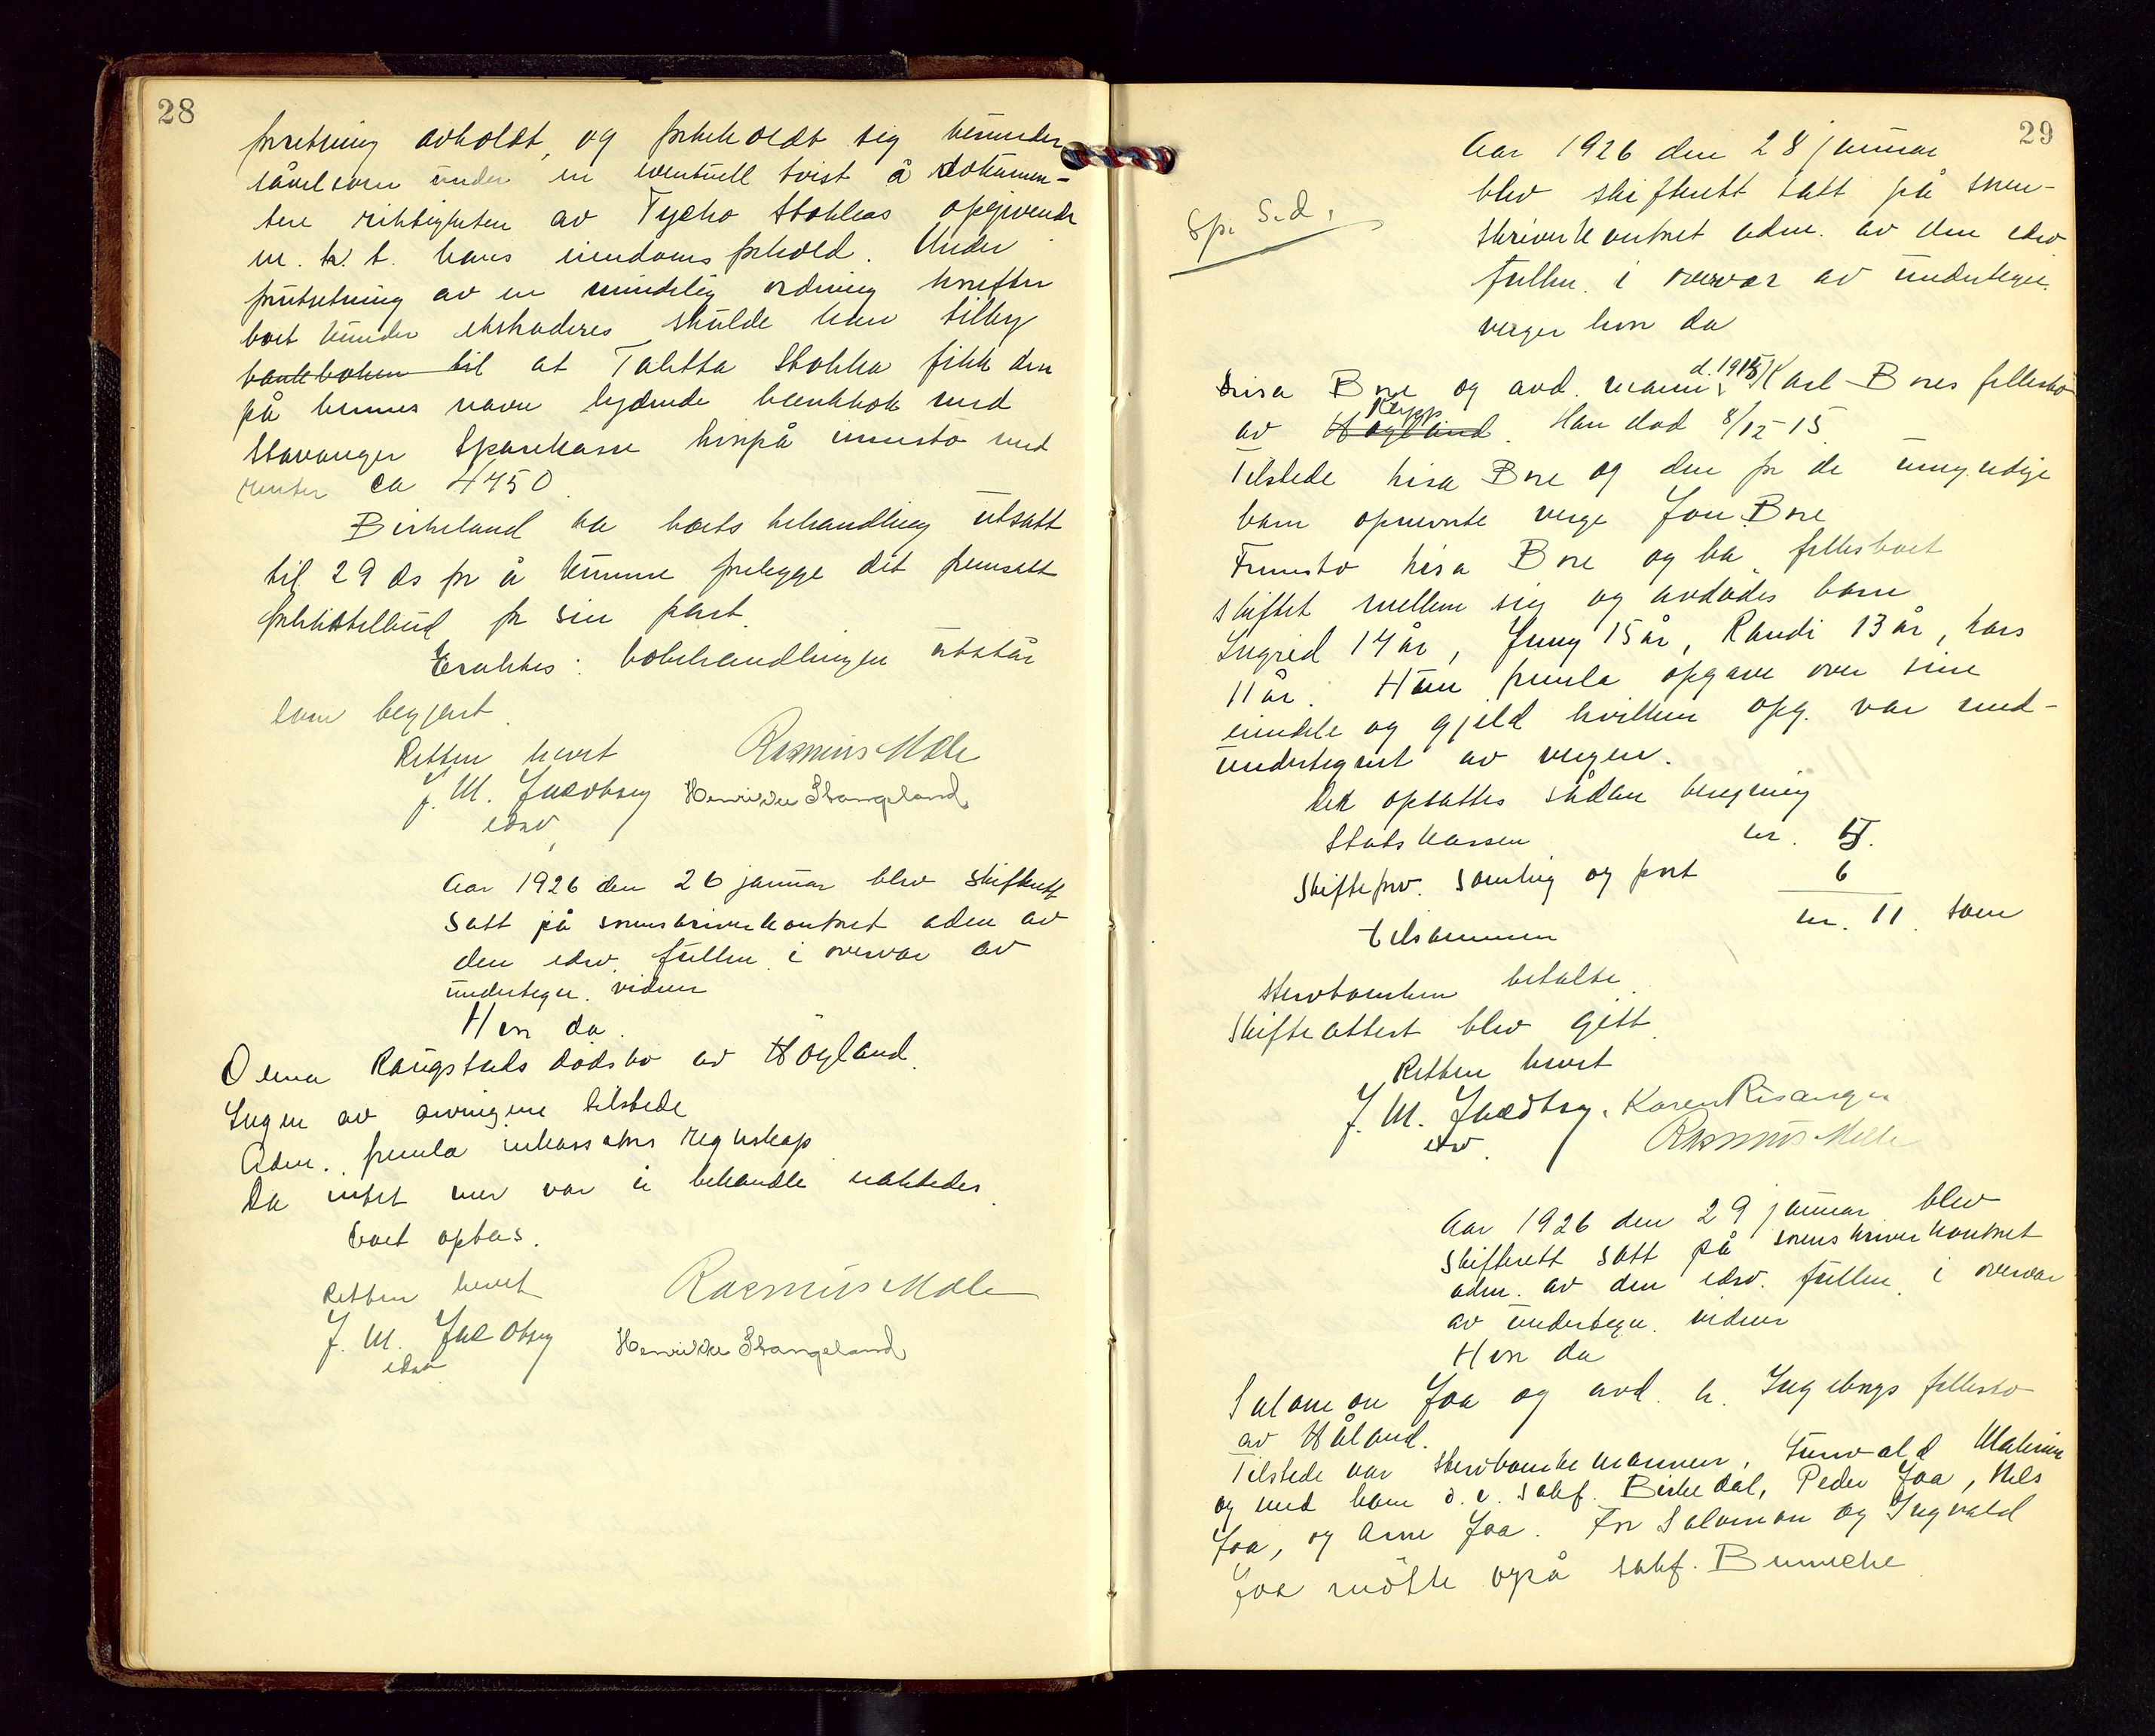 28
forretning avholdt, og forbeholdt sig herunder
såvel som under en eventuell tvist å dokumen-
tere riktigheten av Tycho Stokkas opgivende
m. h. t. hans eiendomsforhold. Under
forutsetning av en mindelig ordning hvorefter
boet kunde ekstraderes skulde han tilby
bankboken til at Taletta Stokka fikk den
på hennes navn lydende bankbok med
Stavanger Sparekasse hvorpå innesto med
renter ca 4450.
Birkeland ba boets behandling utsatt
til 29 ds for å kunne forelegge det fremsatt
forlikstilbud for sin part.
Eraktes: bobehandlingen utstår
som begjært.
Retten hevet Rasmus Mæle
J. M. Jacobsen Henrikke Stangeland
edsv.
Aar 1926 den 26 januar blev skifterett
satt på sorenskriverkontoret adm av
den edsv. fullm. i overvær av
undertegn. vidner
Hvor da.
Olena Raugstads dødsbo av Høyland.
Ingen av arvingene tilstede
Adm. fremla inkassators regnskap
Da intet mer var å behandle eraktedes
boet optas.
Retten hevet Rasmus Mæle
J. M. Jacobsen Henrikke Stangeland
edsv.
29
Aar 1926 den 28 januar
blev skifterett satt på soren-
skriverkontoret adm. av den edsv
fullm. i overvær av undertegn.
verger hvor da
Sp. S.d.
Lisa Bore og avd. mann d. 1915 Karl Bores fellesbo
av Høyland Klepp. Han død 8/12-15.
Tilstede Lisa Bore og den for de umyndige
barn opnevnte verge Jon Bore
Fremsto Lisa Bore og ba fellesboet
skiftet mellem sig og avdødes barn
Ingrid 17 år, Jenny 15 år, Randi 13 år, Lars
11 år. Hun fremla opgave over sine
eiendele og gjeld hvilken opg. var med-
undertegnet av vergen.
Det opsattes sådan beregning
Statskassen kr. 5.
Skifteforv. samling og port 6
tilsammen kr. 11. som
stervboenken betalte.
Skifteattest blev gitt.
Retten hevet
J. M. Jacobsen. Karen Risanger
edsv. Rasmus Mæle
Aar 1926 den 29 januar blev
skifterett satt på sorenskriverkontoret
adm. av den edsv. fullm. i overvær
av undertegn. vidner
Hvor da
Salomon Joa og avd. h. Ingeborgs fellesbo
av Håland.
Tilstede var stervboenkemannen, Torvald
og med ham o.r. sakf. Birkedal, Peder Joa, Nils
Joa, og Arne Joa. For Salomon og Ingvald
Joa møtte også sakf. Bennche